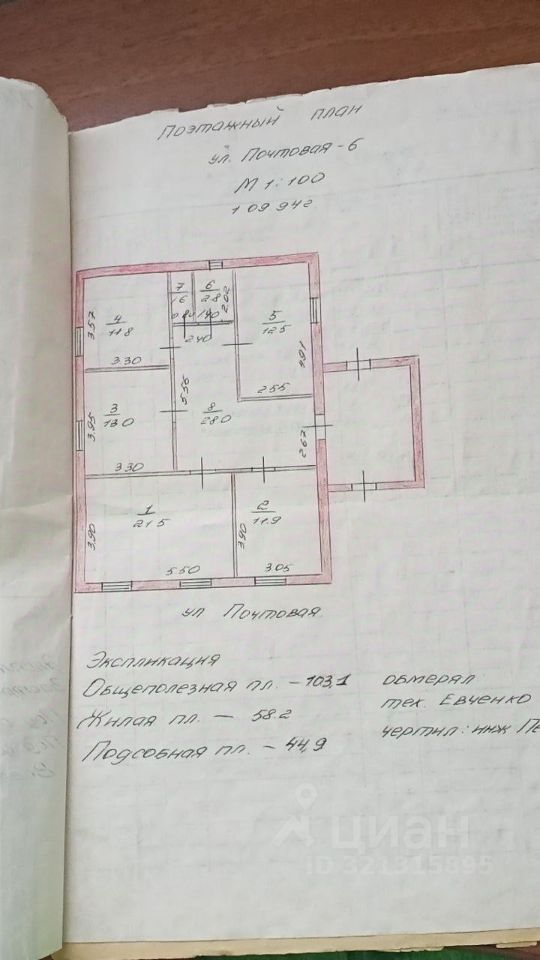 Поэтажный план
ул. Почтовая-6
М 1:100
10994г.
7
6
2.8
2.02
4
11.8
3.57
5
12.5
2.40
3.30
5.56
2.55
3
13.0
3.95
8
28.0
2.67
3.30
1
21.5
2
11.9
3.90
3.90
5.50
3.05
ул Почтовая.
Экспликация
Общеполезная пл. - 103,1
Жилая пл. - 58.2
Подсобная пл. - 44,9
обмерял
тех. Евченко
чертил: инж
циан
ID 321315895